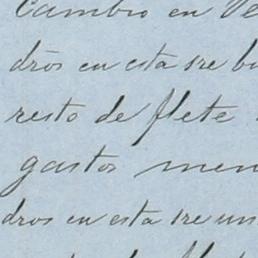 Cambio en Ve
drōs en esta sre bu
resto de flete
gastos men
dros en esta sre un